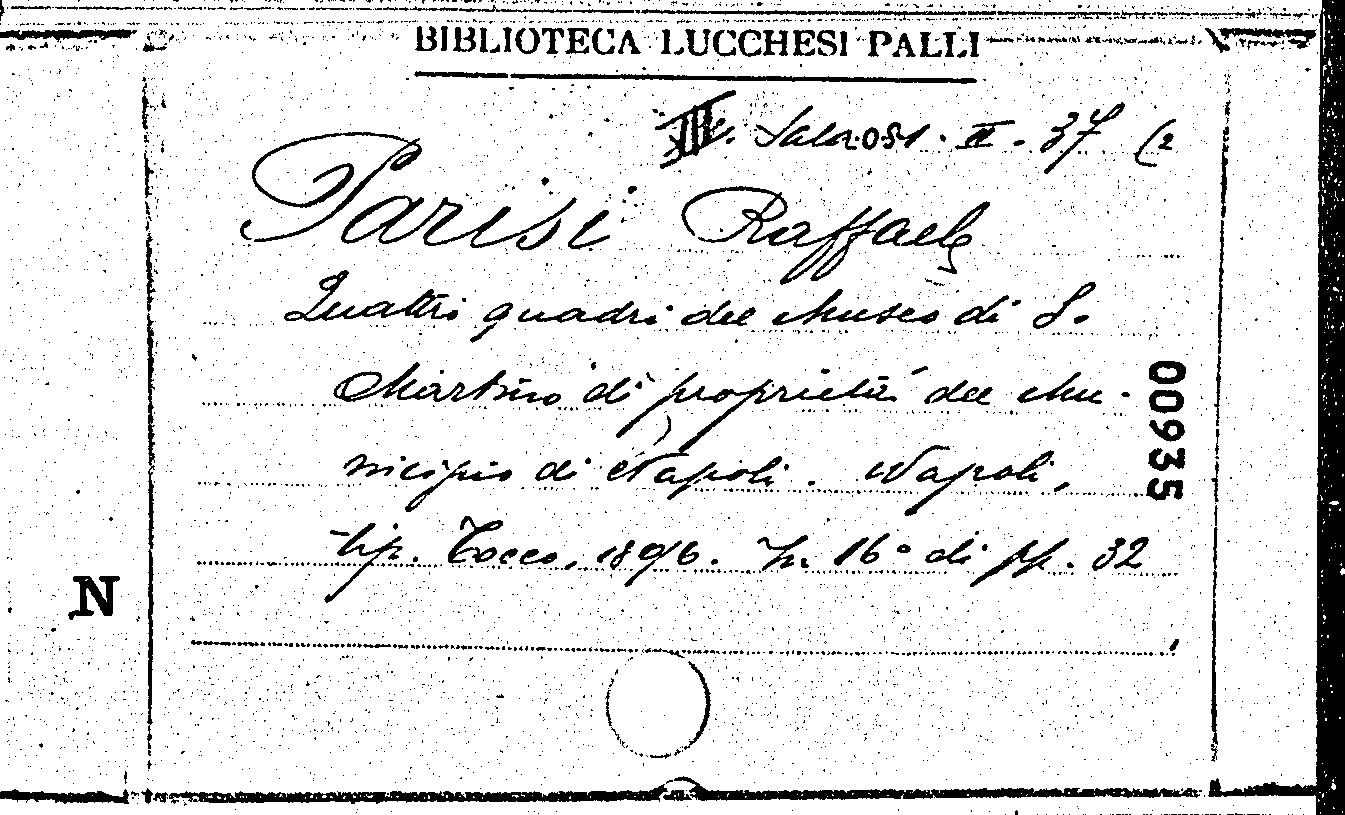 BIBLIOTECA LUCCHESI PALLI
Sala 051. II. 37 (2
Parisi Raffaele
Quattro quadri del Museo di S.
Martino di proprietà del Mu-
nicipio di Napoli. Napoli,
tip. Tocco, 1896. In 16° di pp. 32
00935
N